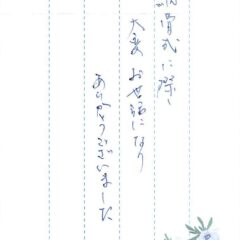 納骨式に際し
大変 お世話になり
ありがとうございました